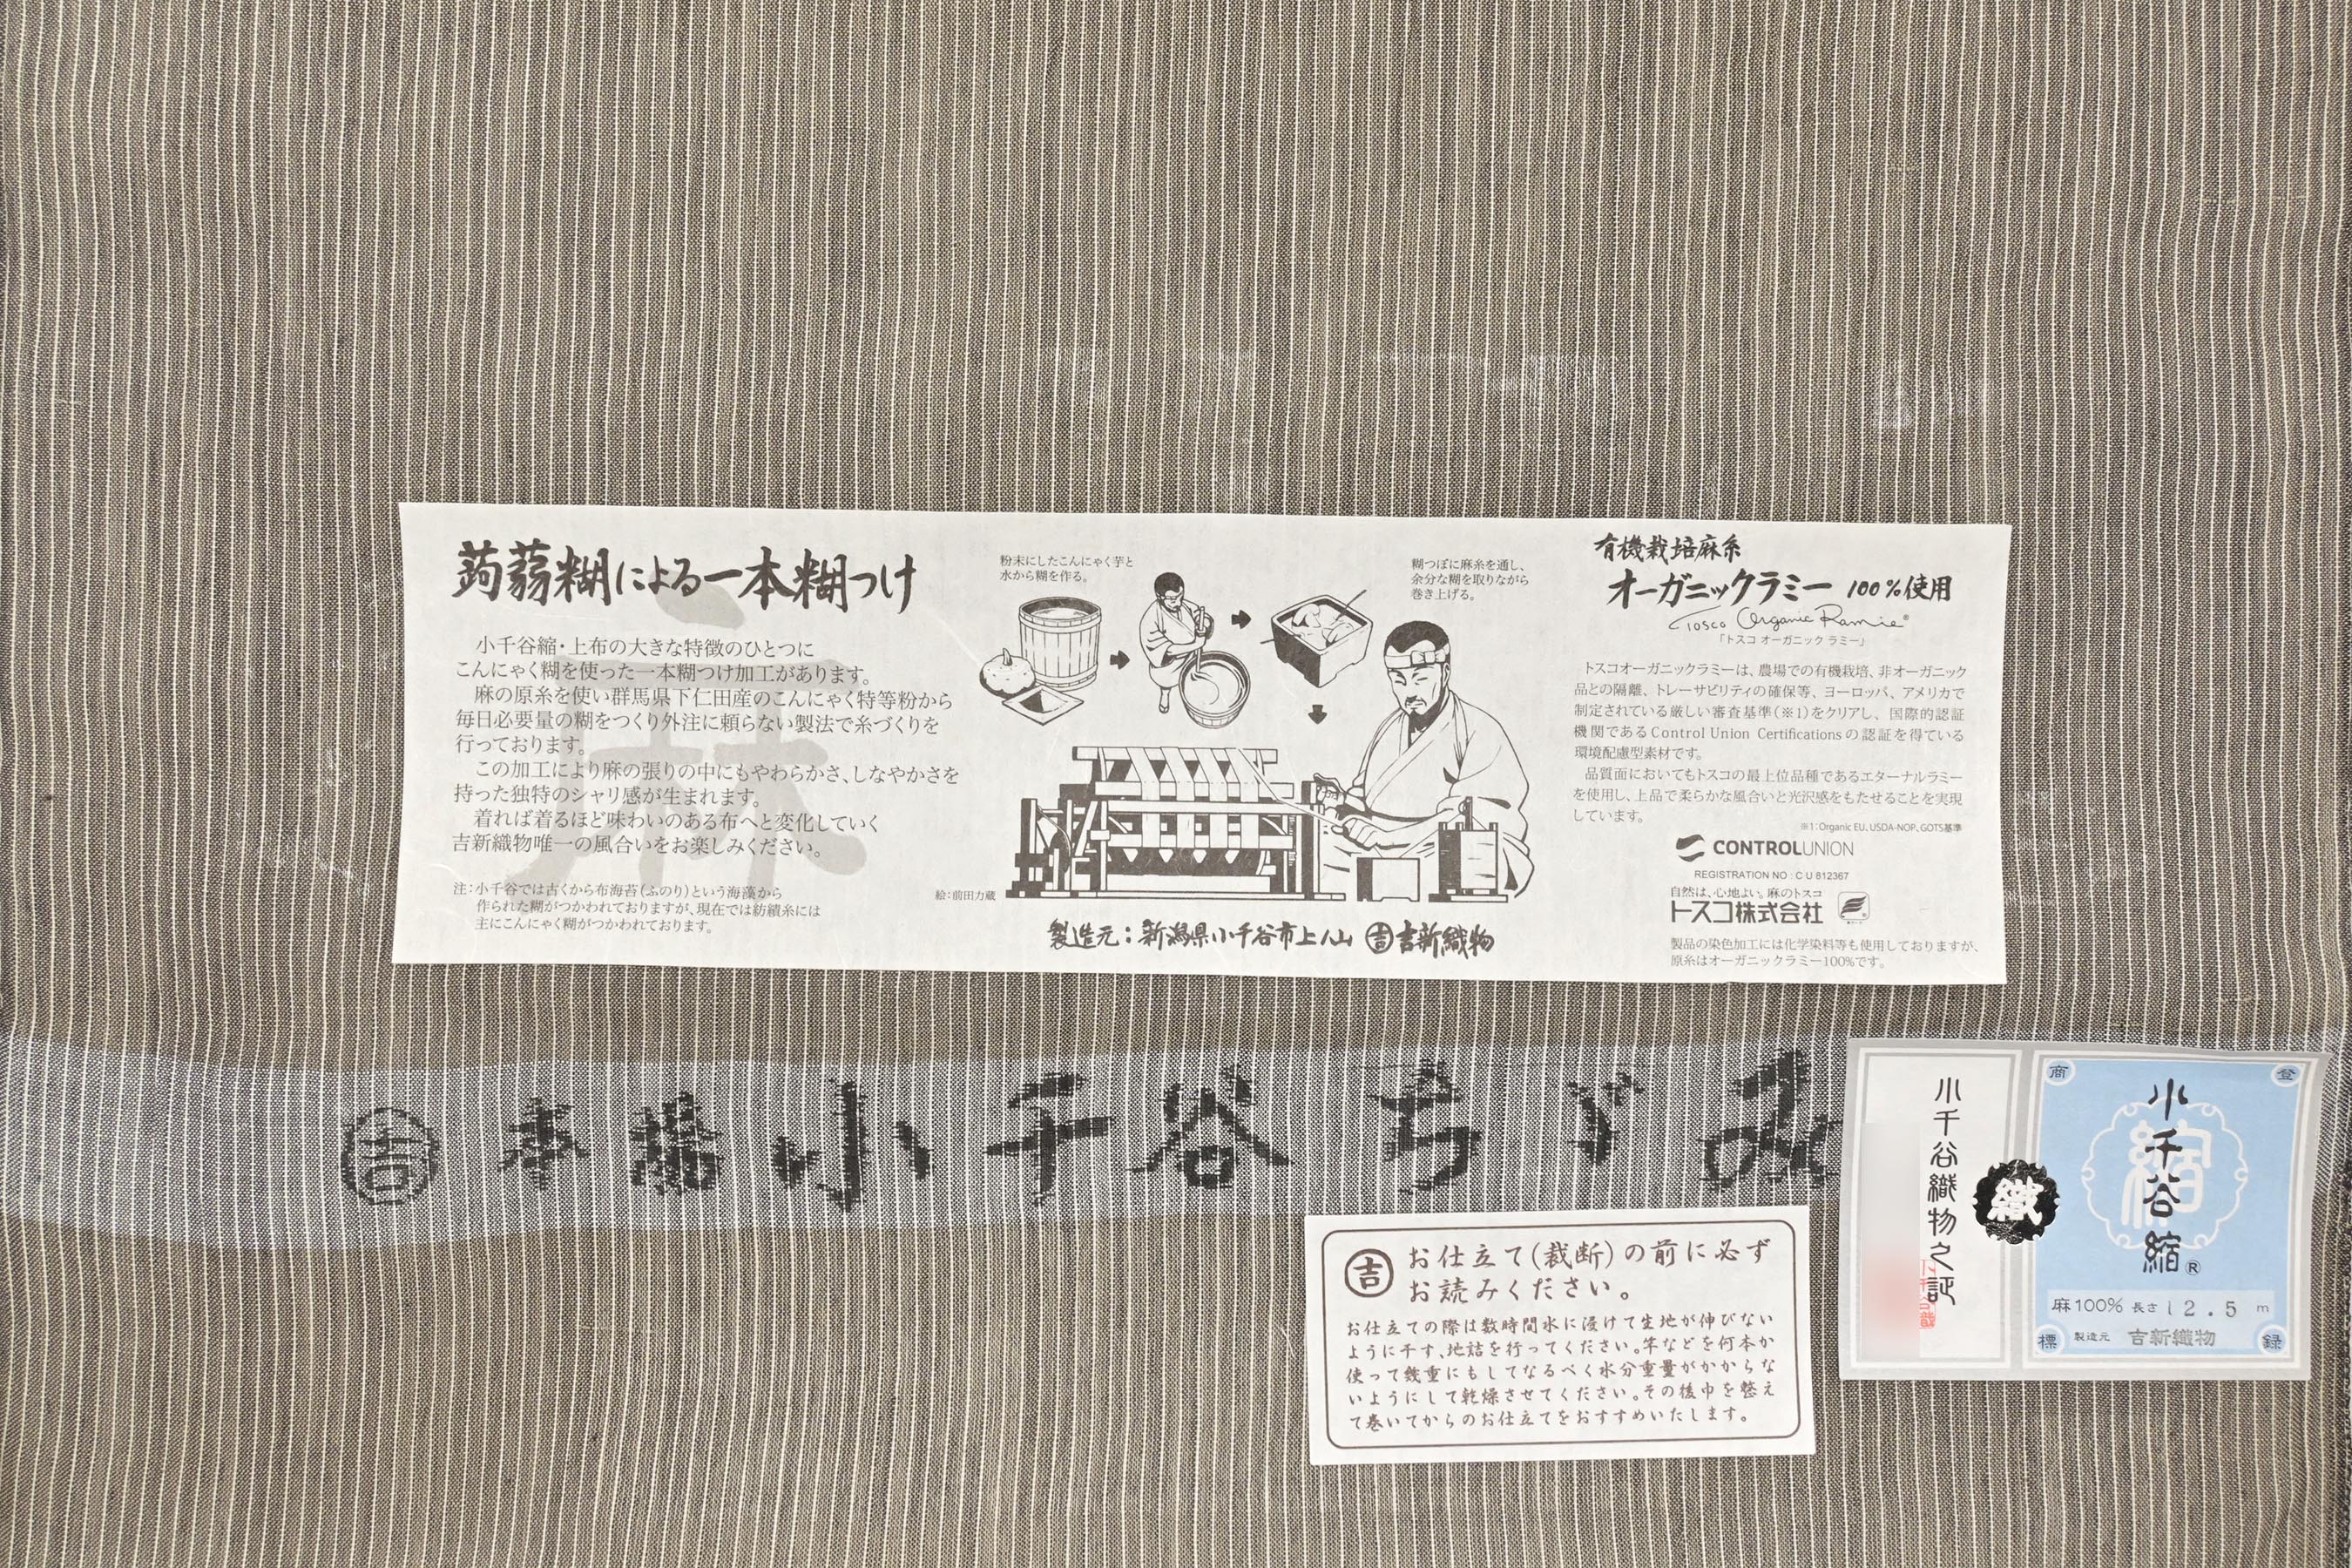 蒟蒻糊による一本糊つけ
小千谷縮・上布の大きな特徴のひとつに
こんにゃく糊を使った一本糊つけ加工があります。
麻の原糸を使い群馬県下仁田産のこんにゃく特等粉から
毎日必要量の糊をつくり外注に頼らない製法で糸づくりを
行っております。
この加工により麻の張りの中にもやわらかさ、しなやかさを
持った独特のシャリ感が生まれます。
着れば着るほど味わいのある布へと変化していく
吉新織物唯一の風合いをお楽しみください。
麻
注：小千谷では古くから布海苔（ふのり）という海藻から
作られた糊がつかわれておりますが、現在では紡績糸には
主にこんにゃく糊がつかわれております。
粉末にしたこんにゃく芋と
水から糊を作る。
糊つぼに麻糸を通し、
余分な糊を取りながら
巻き上げる。
絵：前田力蔵
製造元：新潟県小千谷市上ノ山 吉 吉新織物
有機栽培麻糸
オーガニックラミー 100％使用
Tosco Organic Ramie®
「トスコ オーガニック ラミー」
トスコオーガニックラミーは、農場での有機栽培、非オーガニック
品との隔離、トレーサビリティの確保等、ヨーロッパ、アメリカで
制定されている厳しい審査基準（※1）をクリアし、国際的認証
機関であるControl Union Certificationsの認証を得ている
環境配慮型素材です。
品質面においてもトスコの最上位品種であるエターナルラミー
を使用し、上品で柔らかな風合いと光沢感をもたせることを実現
しています。
※1：Organic EU, USDA-NOP, GOTS基準
CONTROLUNION
REGISTRATION NO : C U 812367
自然は、心地よい。麻のトスコ
トスコ株式会社
製品の染色加工には化学染料等も使用しておりますが、
原糸はオーガニックラミー100％です。
吉 本場小千谷ちゞみ
吉 お仕立て(裁断)の前に必ず
お読みください。
お仕立ての際は数時間水に浸けて生地が伸びない
ように干す、地詰を行ってください。竿などを何本か
使って幾重にもしてなるべく水分重量がかからな
いようにして乾燥させてください。その後巾を整え
て巻いてからのお仕立てをおすすめいたします。
小千谷織物之証
織
商 登
縮
小千谷縮®
麻100% 長さ 12.5 m
標 製造元 吉新織物 録